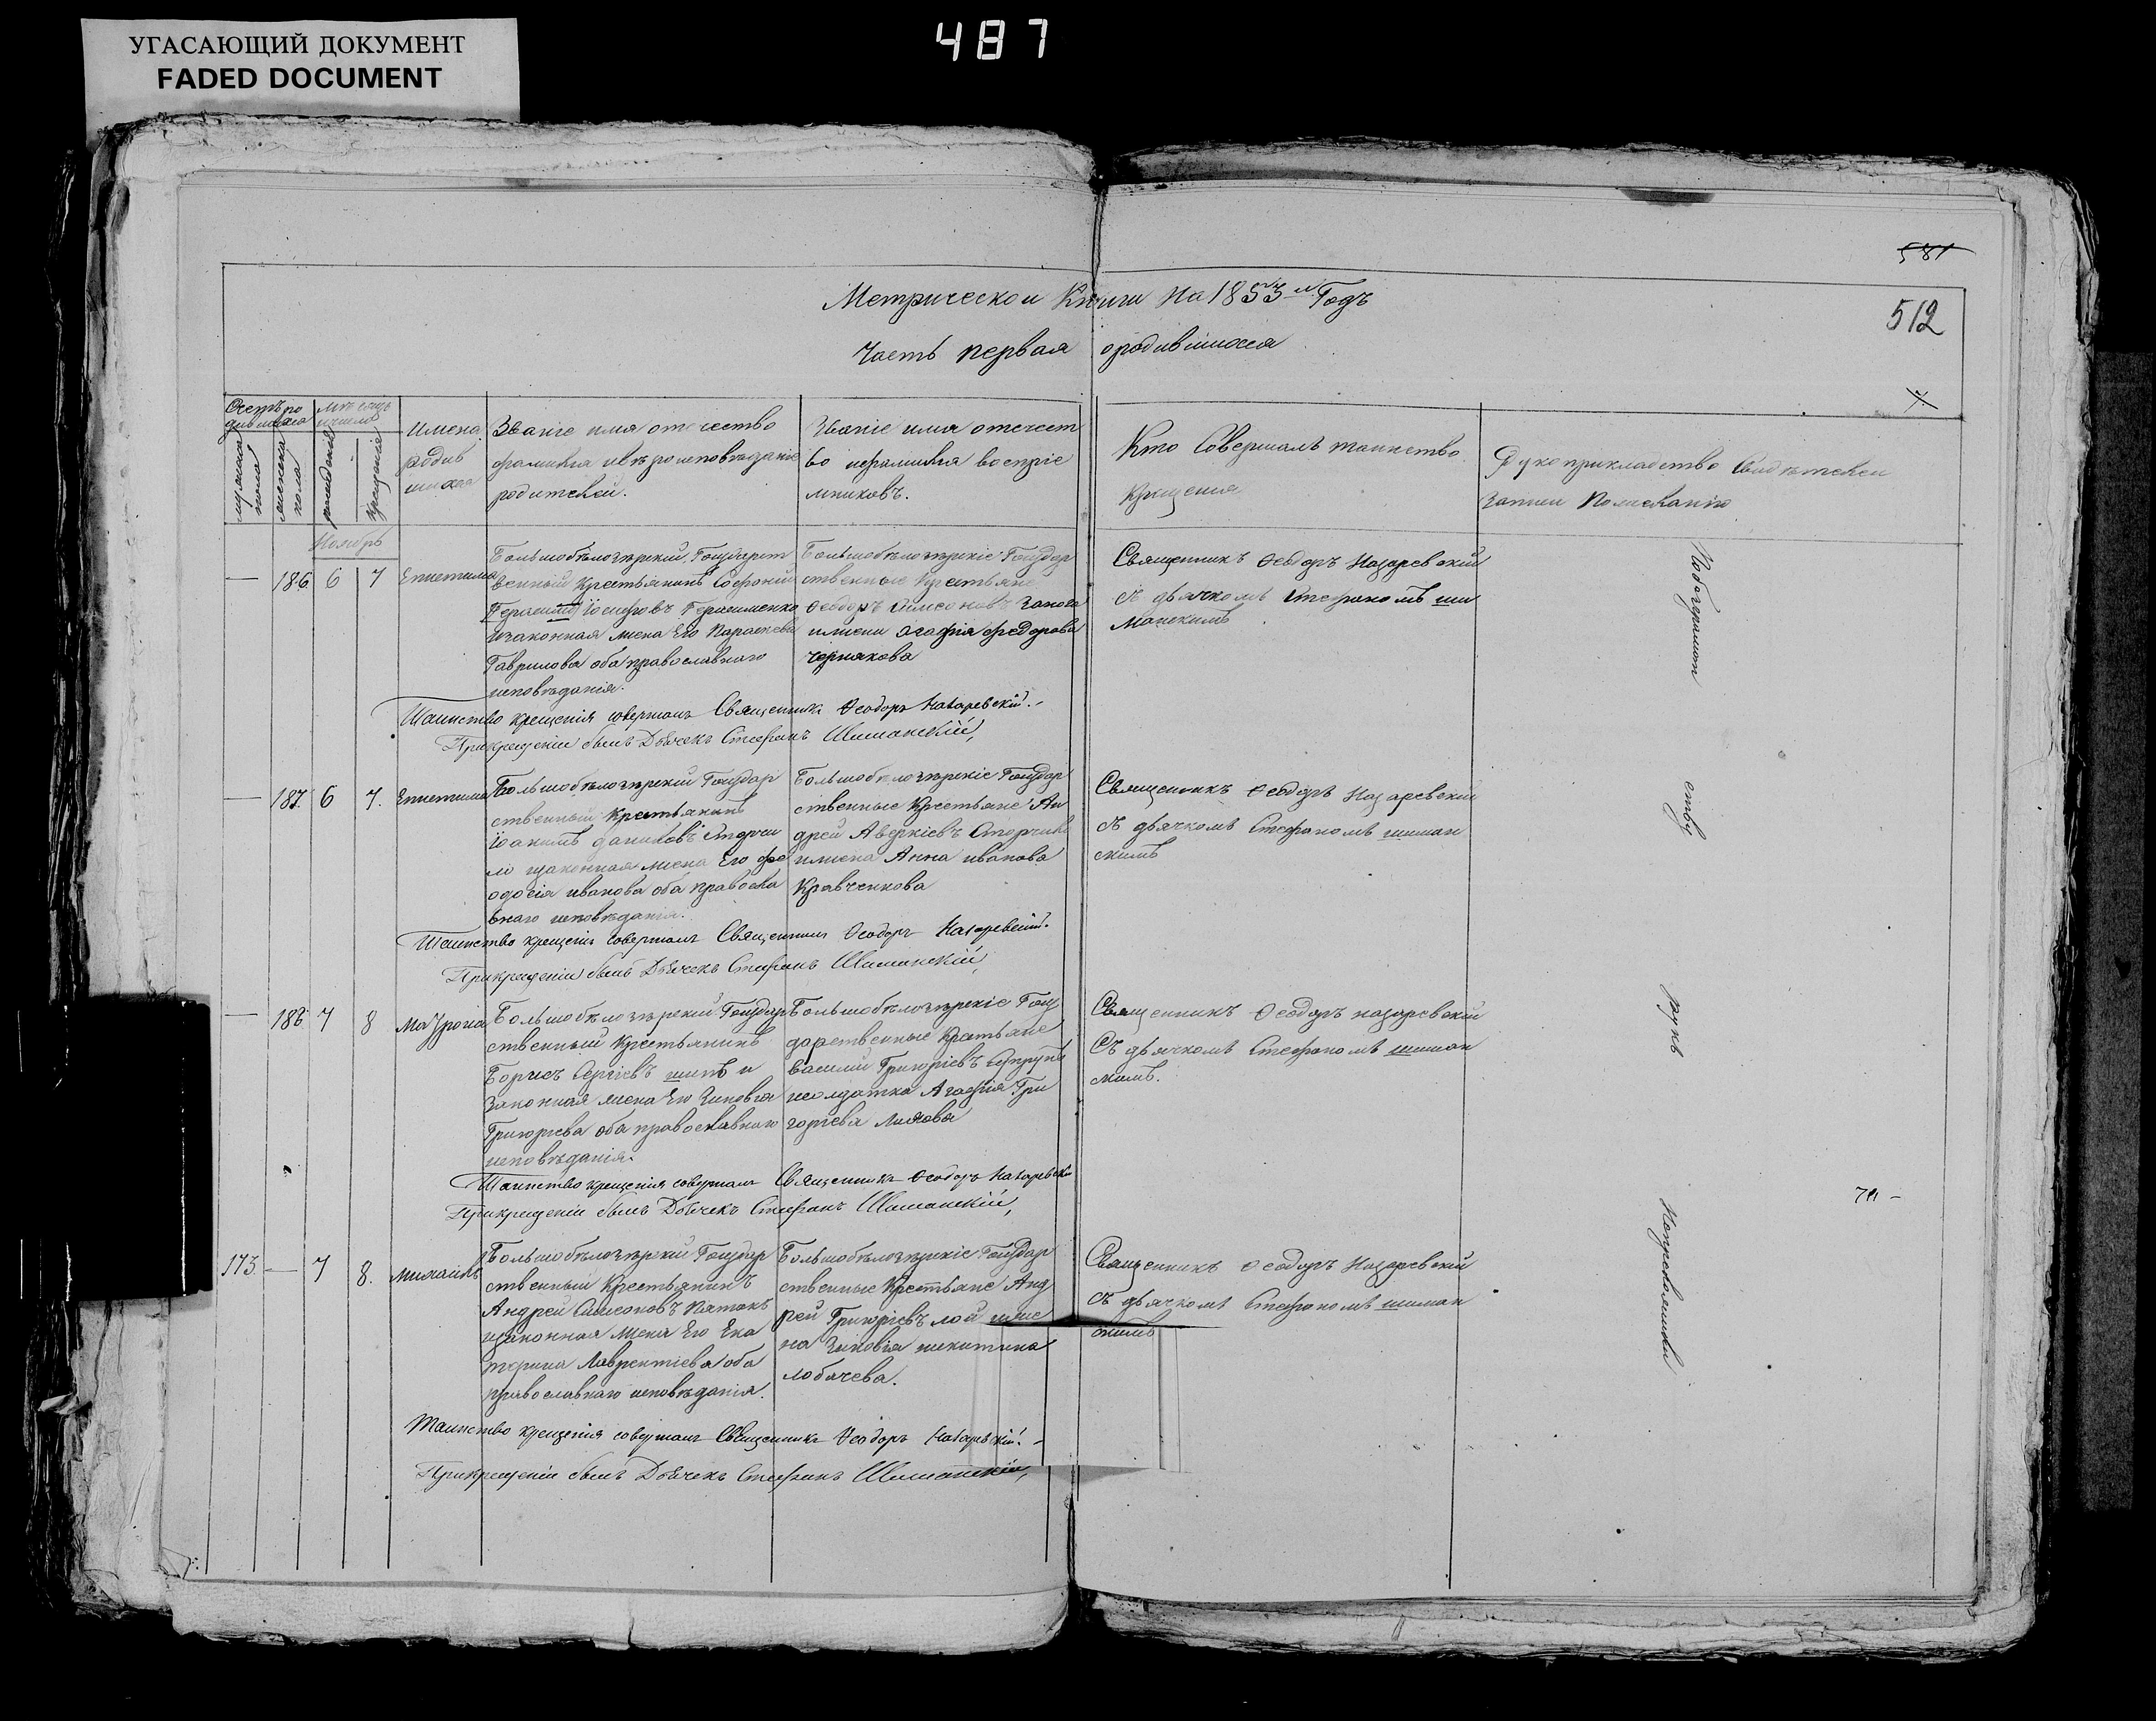 487
УГАСАЮЩИЙ ДОКУМЕНТ
FADED DOCUMENT
581
512
Метрической Книги на 1853й Годъ
Часть первая о родившихся
Счетъ родившихся
мужеска пола
женска пола
Мѣсяцъ и число
рожденія
крещенія
Имена родившихся
Званіе имя отечество
фамилія и вѣроисповѣданіе
родителей.
Званіе имя отечест
во и фамилія воспріе
мниковъ.
Кто Совершалъ таинство
Крещения
Рукоприкладство свидѣтелей
записи По желанію
Ноябрь
— 186 6 7 Епистима
Большобѣлозѣрский Государст
венный Крестьянинъ
Іосифовъ Герасименко
и законная жена Его Параскева
Гаврилова оба православнаго
исповѣданія.
Большобѣлозѣрскіе Государ
ственные Крестьяне
Феодоръ Симеоновъ
и жена Агафія Федорова
Чернякова
Священникъ Феодоръ Назаревский
съ дьячкомъ Стефаномъ ши
манскимъ
Таинство крещенія совершалъ Священникъ Феодоръ Назаревскій.
При крещеніи былъ Дьячекъ Стефанъ Шиманскій,
— 187 6 7. Епистима
Большобѣлозѣрский Государ
ственный Крестьянинъ
Іоакимъ Даниловъ
и законная жена Его Фе
одосія Иванова оба правосла
внаго исповѣданія.
Большобѣлозѣрскіе Государ
ственные Крестьяне Ан
дрей Аверкіевъ
и жена Анна Иванова
Кравченкова
Священникъ Феодоръ Назаревский
съ дьячкомъ Стефаномъ шиман
скимъ
Таинство крещенія совершалъ Священникъ Феодоръ Назаревскій.
При крещеніи былъ Дьячекъ Стефанъ Шиманскій,
— 188 7 8
Большобѣлозѣрский Государ
ственный Крестьянинъ
Борисъ Сергіевъ шипъ и
Законная жена Его Зиновія
Григоріева оба православнаго
исповѣданія.
Большобѣлозѣрскіе Госу
дарственные Крестьяне
василий Григоріевъ Супрунъ
и солдатка Агафія Гри
горіева
Священникъ Феодоръ назаревский
Съ дьячкомъ Стефаномъ шиман
скимъ.
Таинство крещенія совершалъ Священникъ Феодоръ Назаревскій
При крещеніи былъ Дьячекъ Стефанъ Шиманскій,
173 — 7 8. Михаилъ
Большобѣлозѣрский Государ
ственный Крестьянинъ
Андрей Симеоновъ
и законная жена Его Ека
терина Лаврентіева оба
православнаго исповѣданія.
Большобѣлозѣрскіе Государ
ственные Крестьяне Анд
рей Григоріевъ лой и же
на Зиновія никитина
лобачева.
Священникъ Феодоръ Назаревский
съ дьячкомъ Стефаномъ шиман
скимъ
Таинство крещенія совершалъ Священникъ Феодоръ Назаревскій.
При крещеніи былъ Дьячекъ Стефанъ Шиманскій,
По безграмот
ству
рукъ
Неприложили